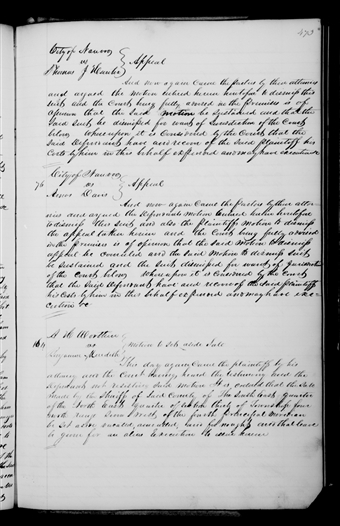 473
City of Nauvoo
vs
J Hunter
Appeal
And now again Came the parties by their attornies
and argued the motion entered herein heretofore to dismiss this
suit and the Court being fully advised in the premises is of
opinion that the said motion be sustained and that the
said suit be dismissed for want of Jurisdiction of the Court
below whereupon it is Considered by the Court that the
said Defendant have and recover of the said plaintiff his
Costs by him in this behalf expended and may have execution &c
City of Nauvoo
76 vs
Amos Davis
Appeal
And now again Came the parties by their attor-
nies and argued the Defendants motion entered herein heretofore
to dismiss this suit and also the plaintiffs motion to dismiss
the appeal taken herein and the Court being fully advised
in the premises is of opinion that the said motion to dismiss
appeal be overruled and the said motion to dismiss suit
be sustained and the suit dismissed for want of Jurisdiction
of the Court below whereupon it is Considered by the Court
that the said Defendant have and recover of the said plaintiff
his Costs by him in this behalf expended and may have exe-
cution &c
164 vs
Benjamin Meredith
Motion to Set aside Sale
This day again Came the plaintiff by his
attorney and the Court having heard the testimony and the
defendant not resisting said motion It is ordered that the Sale
made by the Sheriff of said County of the South East quarter
of the North East quarter of Section thirty of Township four
north range West of the fourth principal meridian
be set aside vacated annulled have for nought and that leave
be given for an alias execution to issue herein